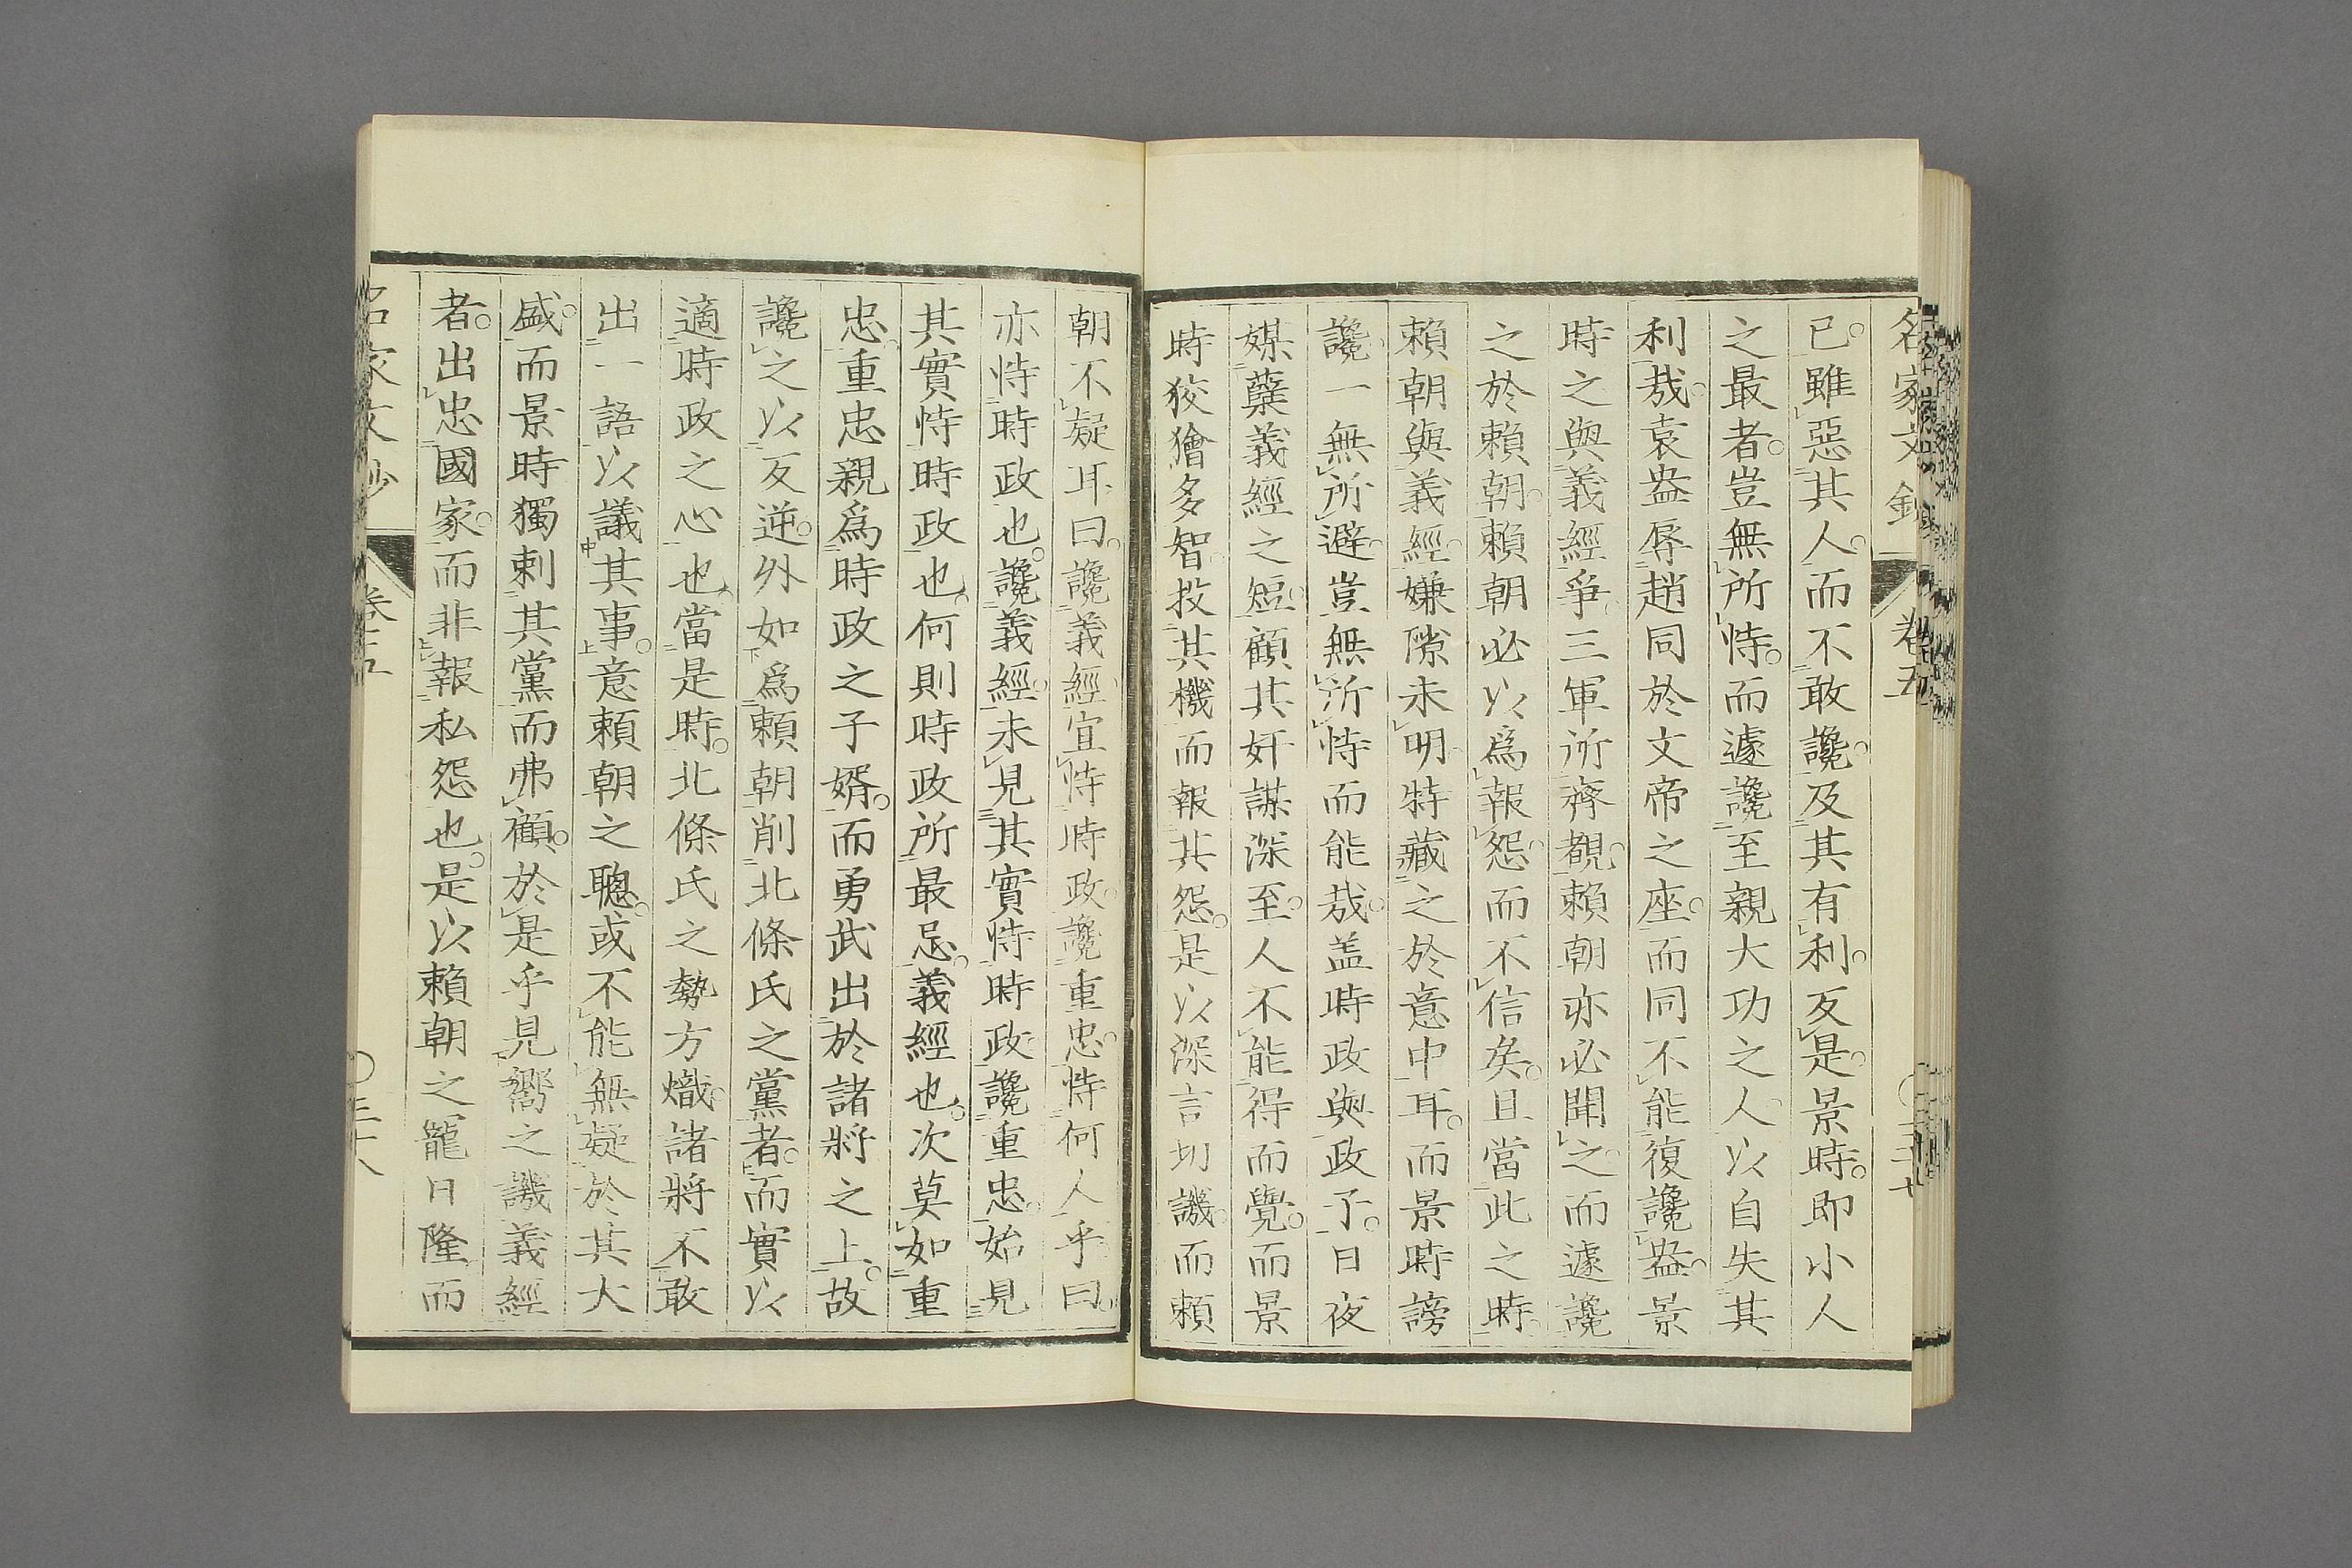 名家文鈔 卷五 〇三十七
已。雖惡其人。而不敢讒。及其有利。反是。景時。即小人
之最者。豈無所恃。而遽讒至親大功之人。以自失其
利哉。袁盎辱趙同於文帝之座。而同不能復讒盎。景
時之與義經爭。三軍所齊覩。賴朝亦必聞之。而遽讒
之於賴朝。賴朝必以爲報怨。而不信矣。且當此之時。
賴朝與義經。嫌隙未明。特藏之於意中耳。而景時謗
讒。一無所避。豈無所恃而能哉。盖時政與政子。日夜
媒糵義經之短。顧其奸謀深至。人不能得而覺。而景
時狡獪多智。投其機而報其怨。是以深言切譏。而賴
朝不疑耳。曰。讒義經。宜恃時政。讒重忠。恃何人乎。曰。
亦恃時政也。讒義經。未見其實恃時政。讒重忠。始見
其實恃時政也。何則時政所最忌。義經也。次莫如重
忠。重忠親爲時政之子婿。而勇武出於諸將之上。故
讒之以反逆。外如爲賴朝削北條氏之黨者。而實以
適時政之心也。當是時。北條氏之勢方熾。諸將不敢
出一語以議其事。意賴朝之聰。或不能無疑於其大
盛。而景時獨剌其黨而弗顧。於是乎見嚮之譏義經
者。出忠國家。而非報私怨也。是以賴朝之寵日隆。而
名家文鈔 卷五 〇三十八